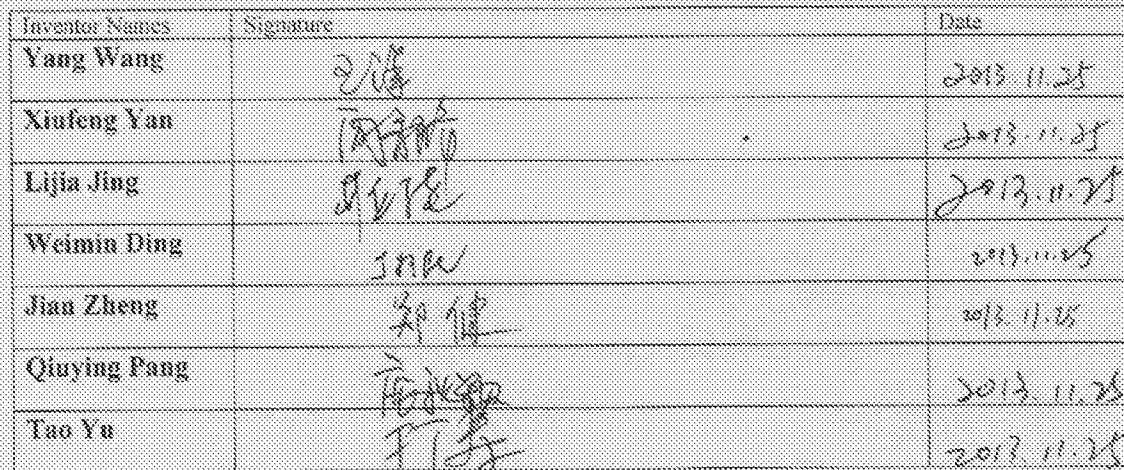 Inventor Names Signature Date
Yang Wang 2013.11.25
Xiufeng Yan 2013.11.25
Lijia Jing 2013.11.25
Weimin Ding 2013.11.25
Jian Zheng 郑健 2013.11.25
Qiuying Pang 2013.11.25
Tao Yu 2013.11.25